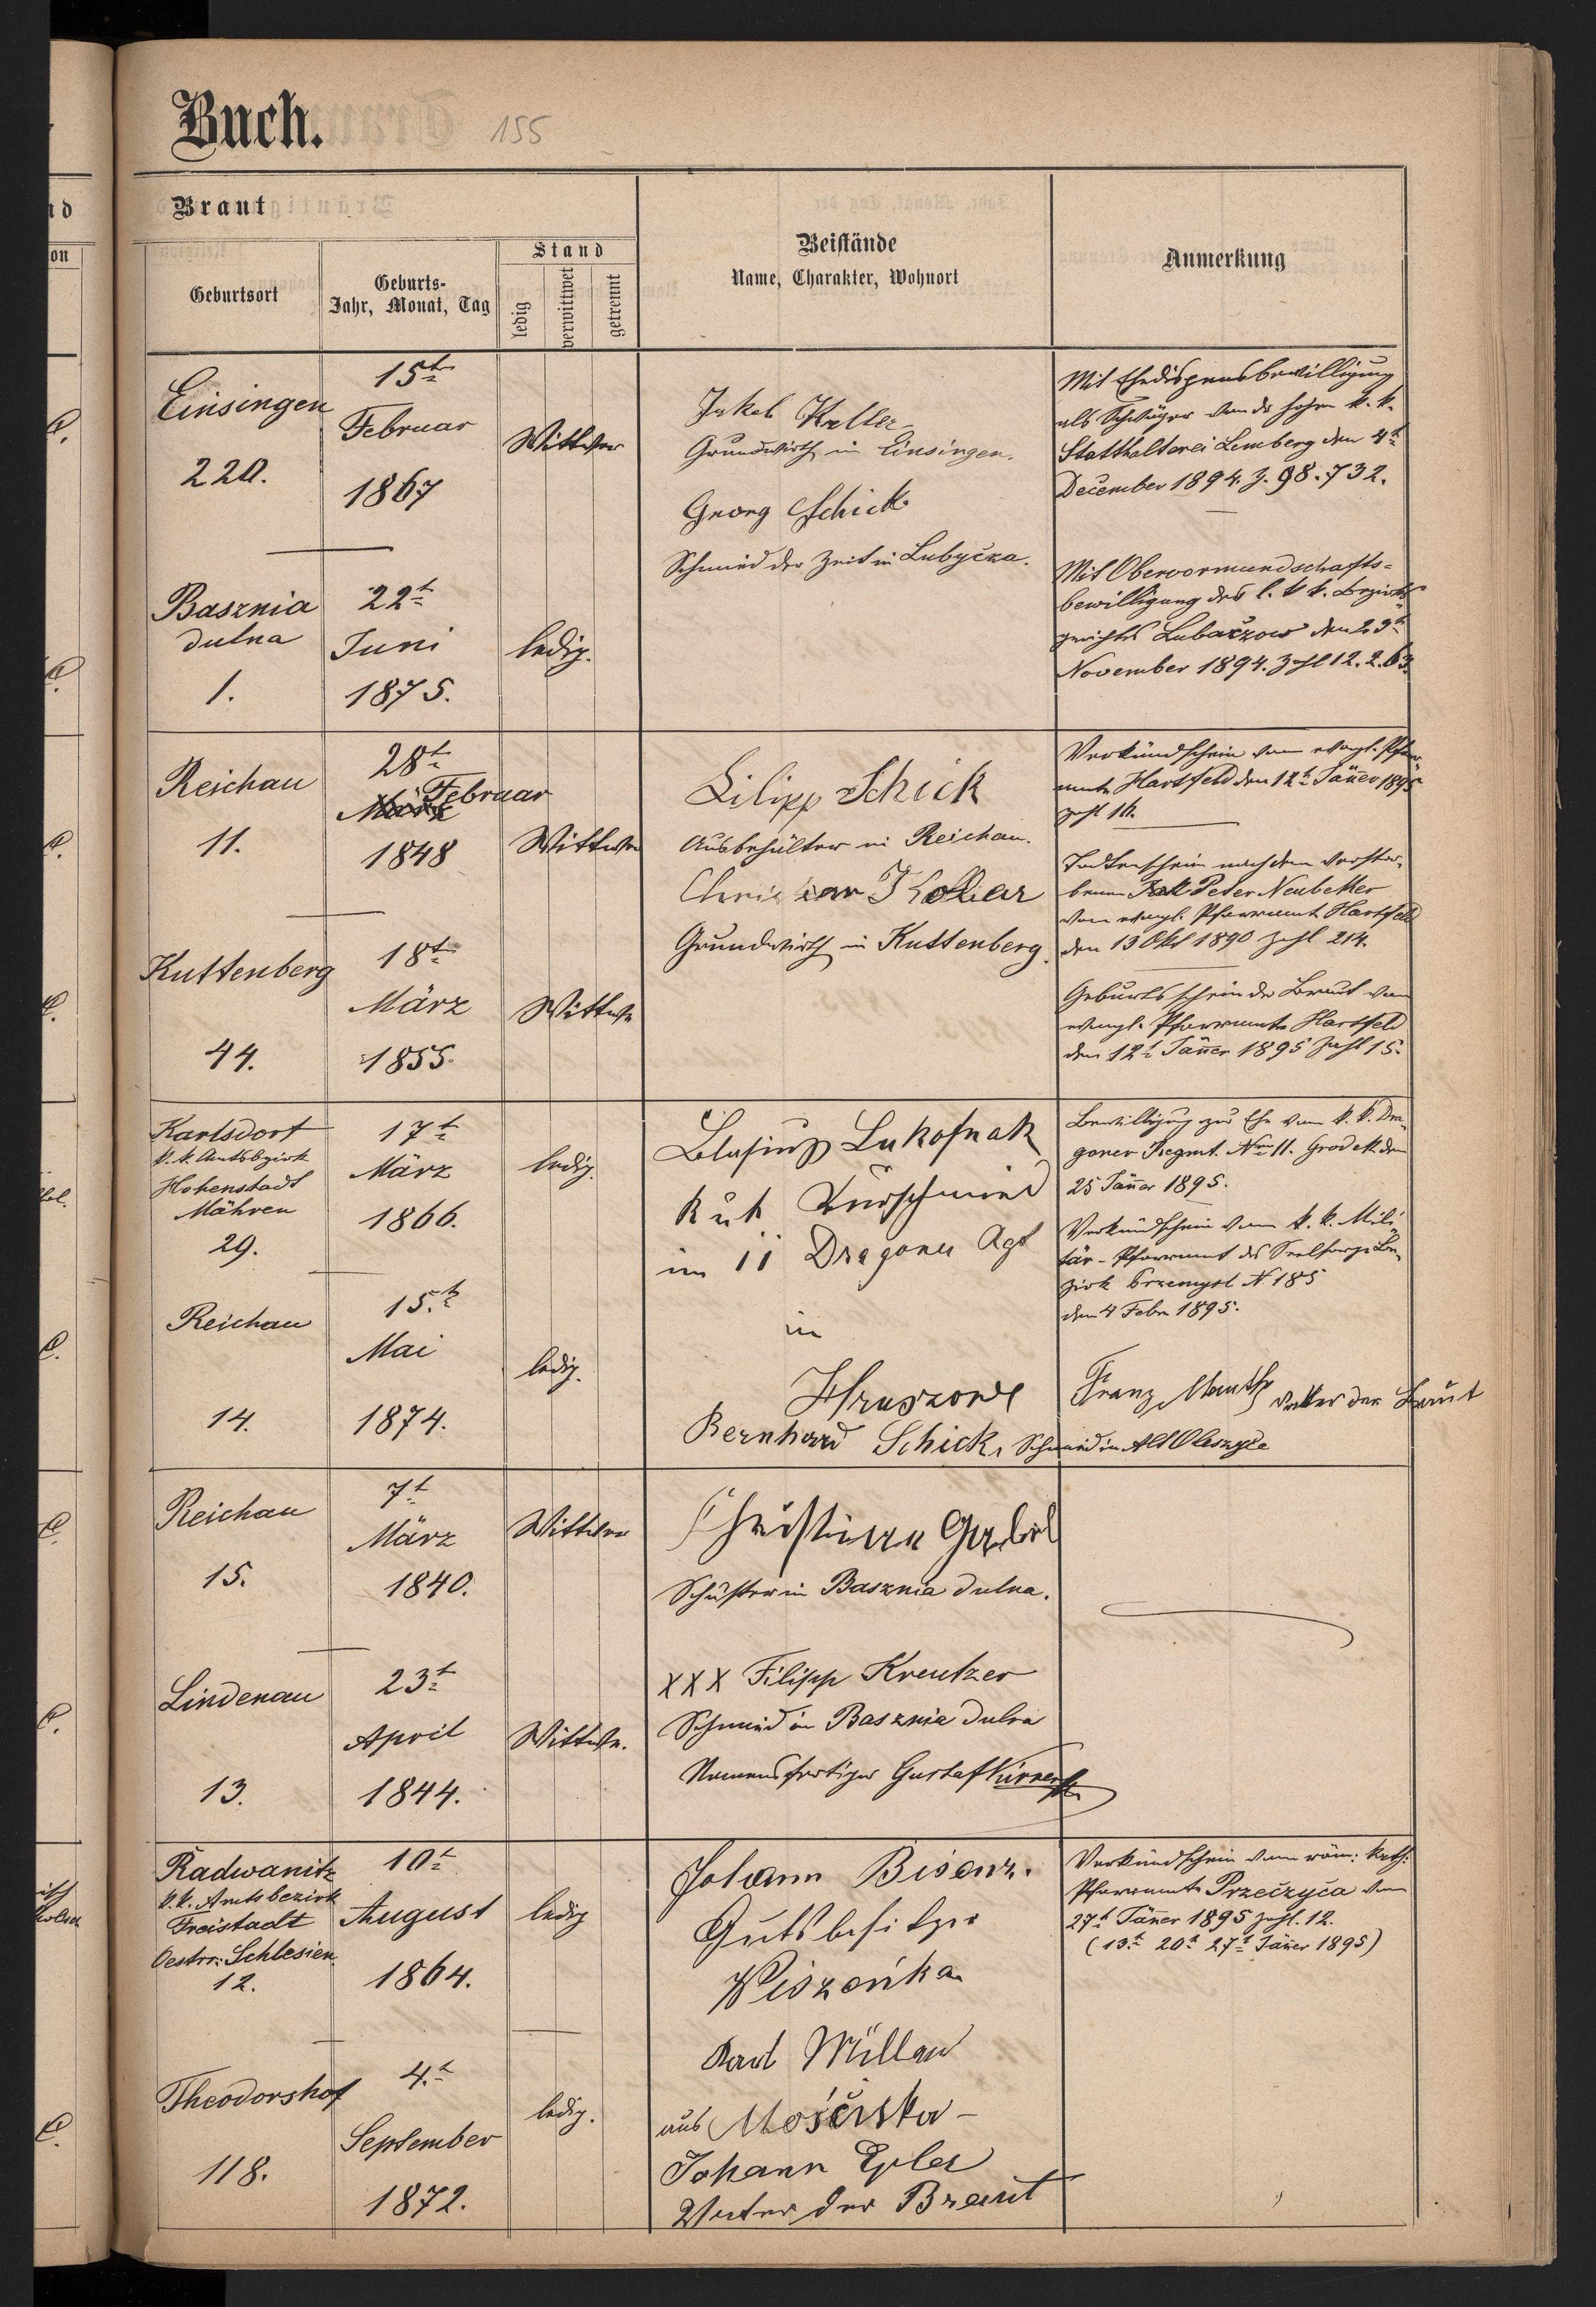 Buch.
155
Braut
Geburtsort
Geburts-
Jahr, Monat, Tag
Stand
ledig
verwittwet
getrennt
Beistände
Name, Charakter, Wohnort
Anmerkung
Einsingen
220.
15t
Februar
1867
Wittwer
Jakob Kaller
Grundwirth in Einsingen.
Georg Schick
Schmied der Zeit in Lubycza.
Mit Ehedispensbewilligung
als Schwäger von der hohen k. k.
Statthalterei Lemberg den 4t
December 1894. Z. 98.732.
Basznia
dulna
1.
22t
Juni
1875.
ledig.
Mit Obervormundschafts-
bewilligung des l. k k. Bezirks
gerichts Lubaczow den 29t
November 1894. Zahl 12.2.63.
Reichau
11.
28t
Februar
1848
Wittwer
Filipp Schick
Ausbehälter in Reichau.
Christian Kollar
Grundwirth in Kuttenberg.
Verkündschein vom evangl. Pfarr-
amte Hartfeld den 12t Jäner 1895
Zahl 16.
Todtenschein nach dem verstor-
benen Peter Neubecker
vom evangl. Pfarramt Hartfeld
den 13 Okt 1890 Zahl 214.
Kuttenberg
44.
18t
März
1855.
Wittwe
Geburtsschein der Braut vom
evangl. Pfarramte Hartfeld
den 12t Jänner 1895 Zahl 15.
Karlsdorf
k. k. Amtsbezirk
Hohenstadt
Mähren
29.
17t
März
1866.
ledig.
Blasius Lukosnak
k u k Kurschmied
im 11 Dragoner Rgt
in
Hruszow
Bernhard Schick, Schmied in Alt Oleszyce
Bewilligung zur Ehe vom k. k. Dra-
goner Regmt. Nro 11. Grodek den
25 Jäner 1895.
Verkündschein vom k. k. Mili
tär-Pfarramt des Seelsorge Be-
zirk Przemysl N 185
den 4 Febr 1895.
Franz Mauth Vatter der Braut
Reichau
14.
15.t
Mai
1874.
ledig.
Reichau
15.
7t
März
1840.
Wittwer
Christian Gabel
Schuster in Basznia dulna.
Lindenau
13.
23t
April
1844.
Wittwe.
XXX Filipp Kreutzer
Schmied in Basznia dulna
Namensfertiger Gustaf
Radwanitz
k. k. Amtsbezirk
Freistadt
Oestrr: Schlesien
12.
10t
August
1864.
ledig
Johann Bisanz.
Gutsbesitzer
Wiszenka
Karl Müllau
aus Mościska-
Johann Epler
Vater der Braut
Verkündschein vom röm: kath:
Pfarramte Przeczyca vom
27t Jäner 1895 Zahl. 12.
(13.t 20t 27t Jäner 1895)
Theodorshof
118.
4.t
September
1872.
ledig.